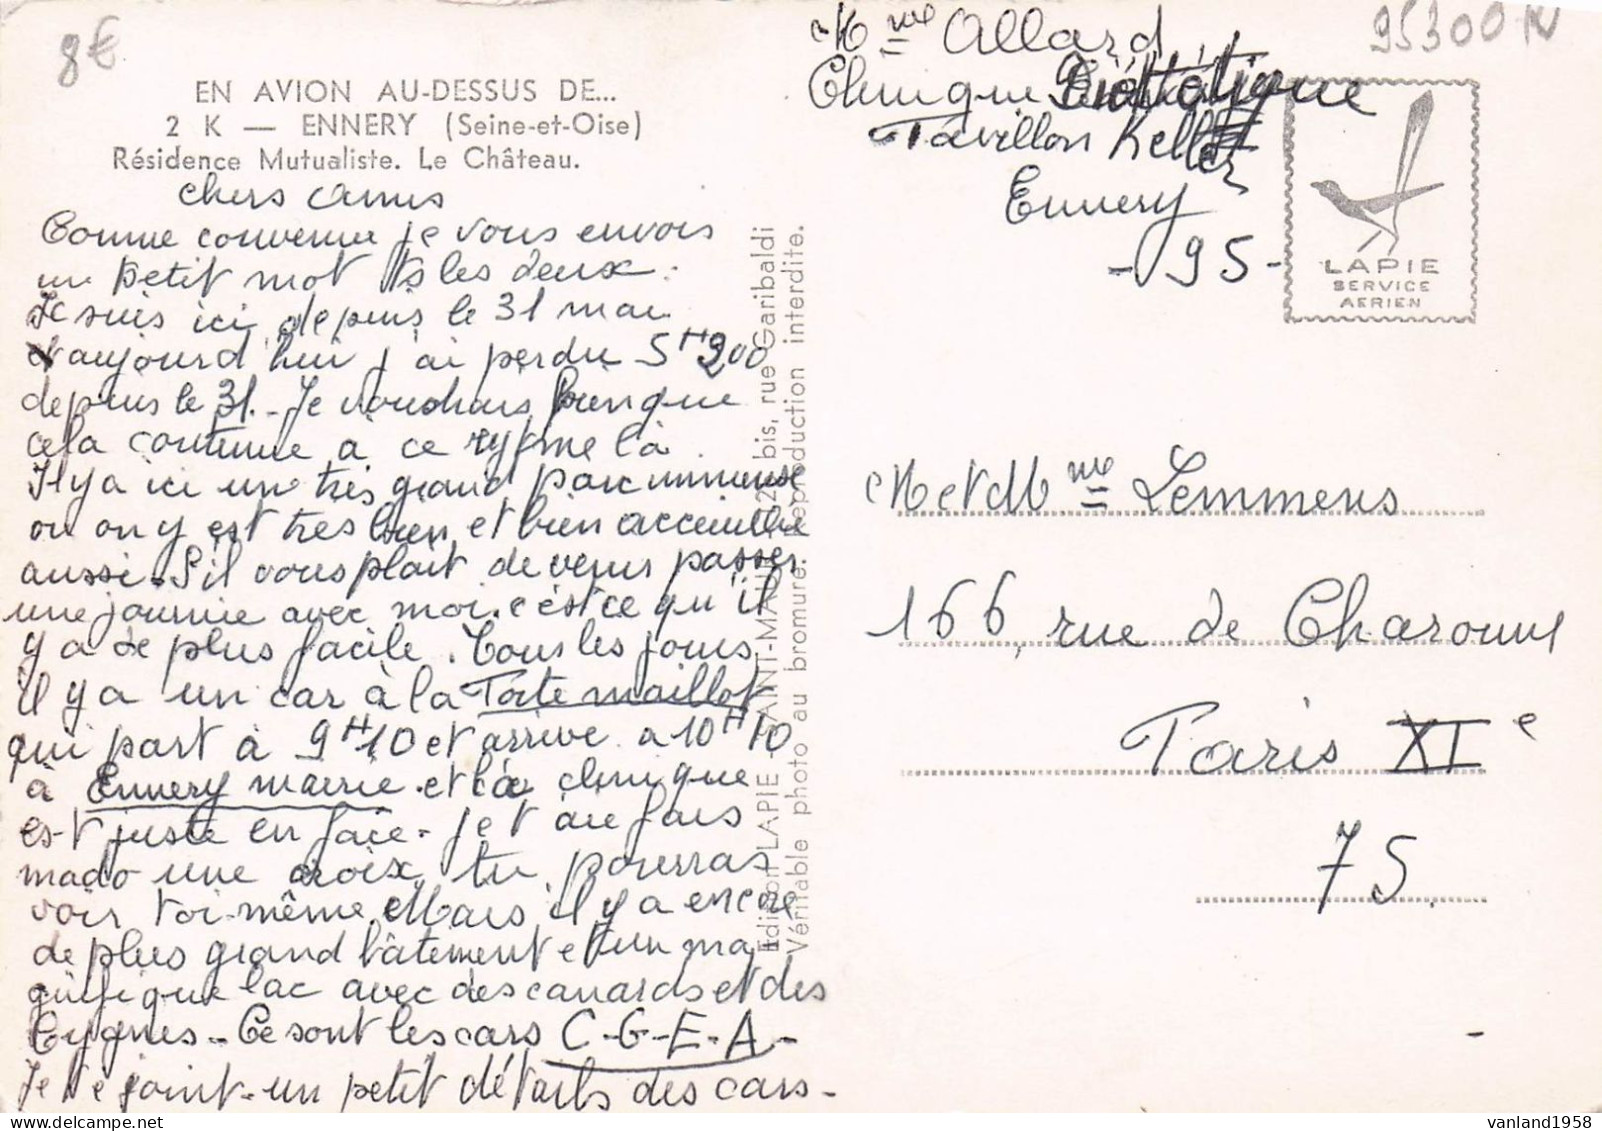 8€
EN AVION AU-DESSUS DE...
2 K — ENNERY (Seine-et-Oise)
Résidence Mutualiste. Le Château.
Chers Amis
Comme convenue je vous envois
un petit mot ts les deux.
Je suis ici depuis le 31 mai
et aujourd'hui j'ai perdu 5 H 900
depuis le 31. - Je voudrais bien que
cela continue à ce rytme là.
Il y a ici un très grand parc immense
ou on y est tres bien et bien acceuillie
aussi. S'il vous plait de venir passer
une journie avec moi. c'est ce qu'il
y a de plus facile. Tous les jours
il y a un car à la Porte maillot
qui part à 9 H 10 et arrive a 10 H 10
à Ennery mairie. et la clinique
est juste en face. je t'ai fais
mado une croix, tu pourras
voir toi-même. Mais il y a encore
de plus grand bâtement et un ma
gnifique lac avec des canards et des
Cygnes - Ce sont les cars C-G-E-A-
Je te joint un petit détails des cars -
Edition LAPIE - SAINT-MAUR 2 bis, rue Garibaldi
Véritable photo au bromure. Reproduction interdite.
95300 N
Mme Allard
Clinique Diététique
Pavillon Keller
Ennery
- 95 -
LAPIE
SERVICE
AERIEN
M et Mme Lemmens
166, rue de Charonne
Paris XIe
75
vanland1958